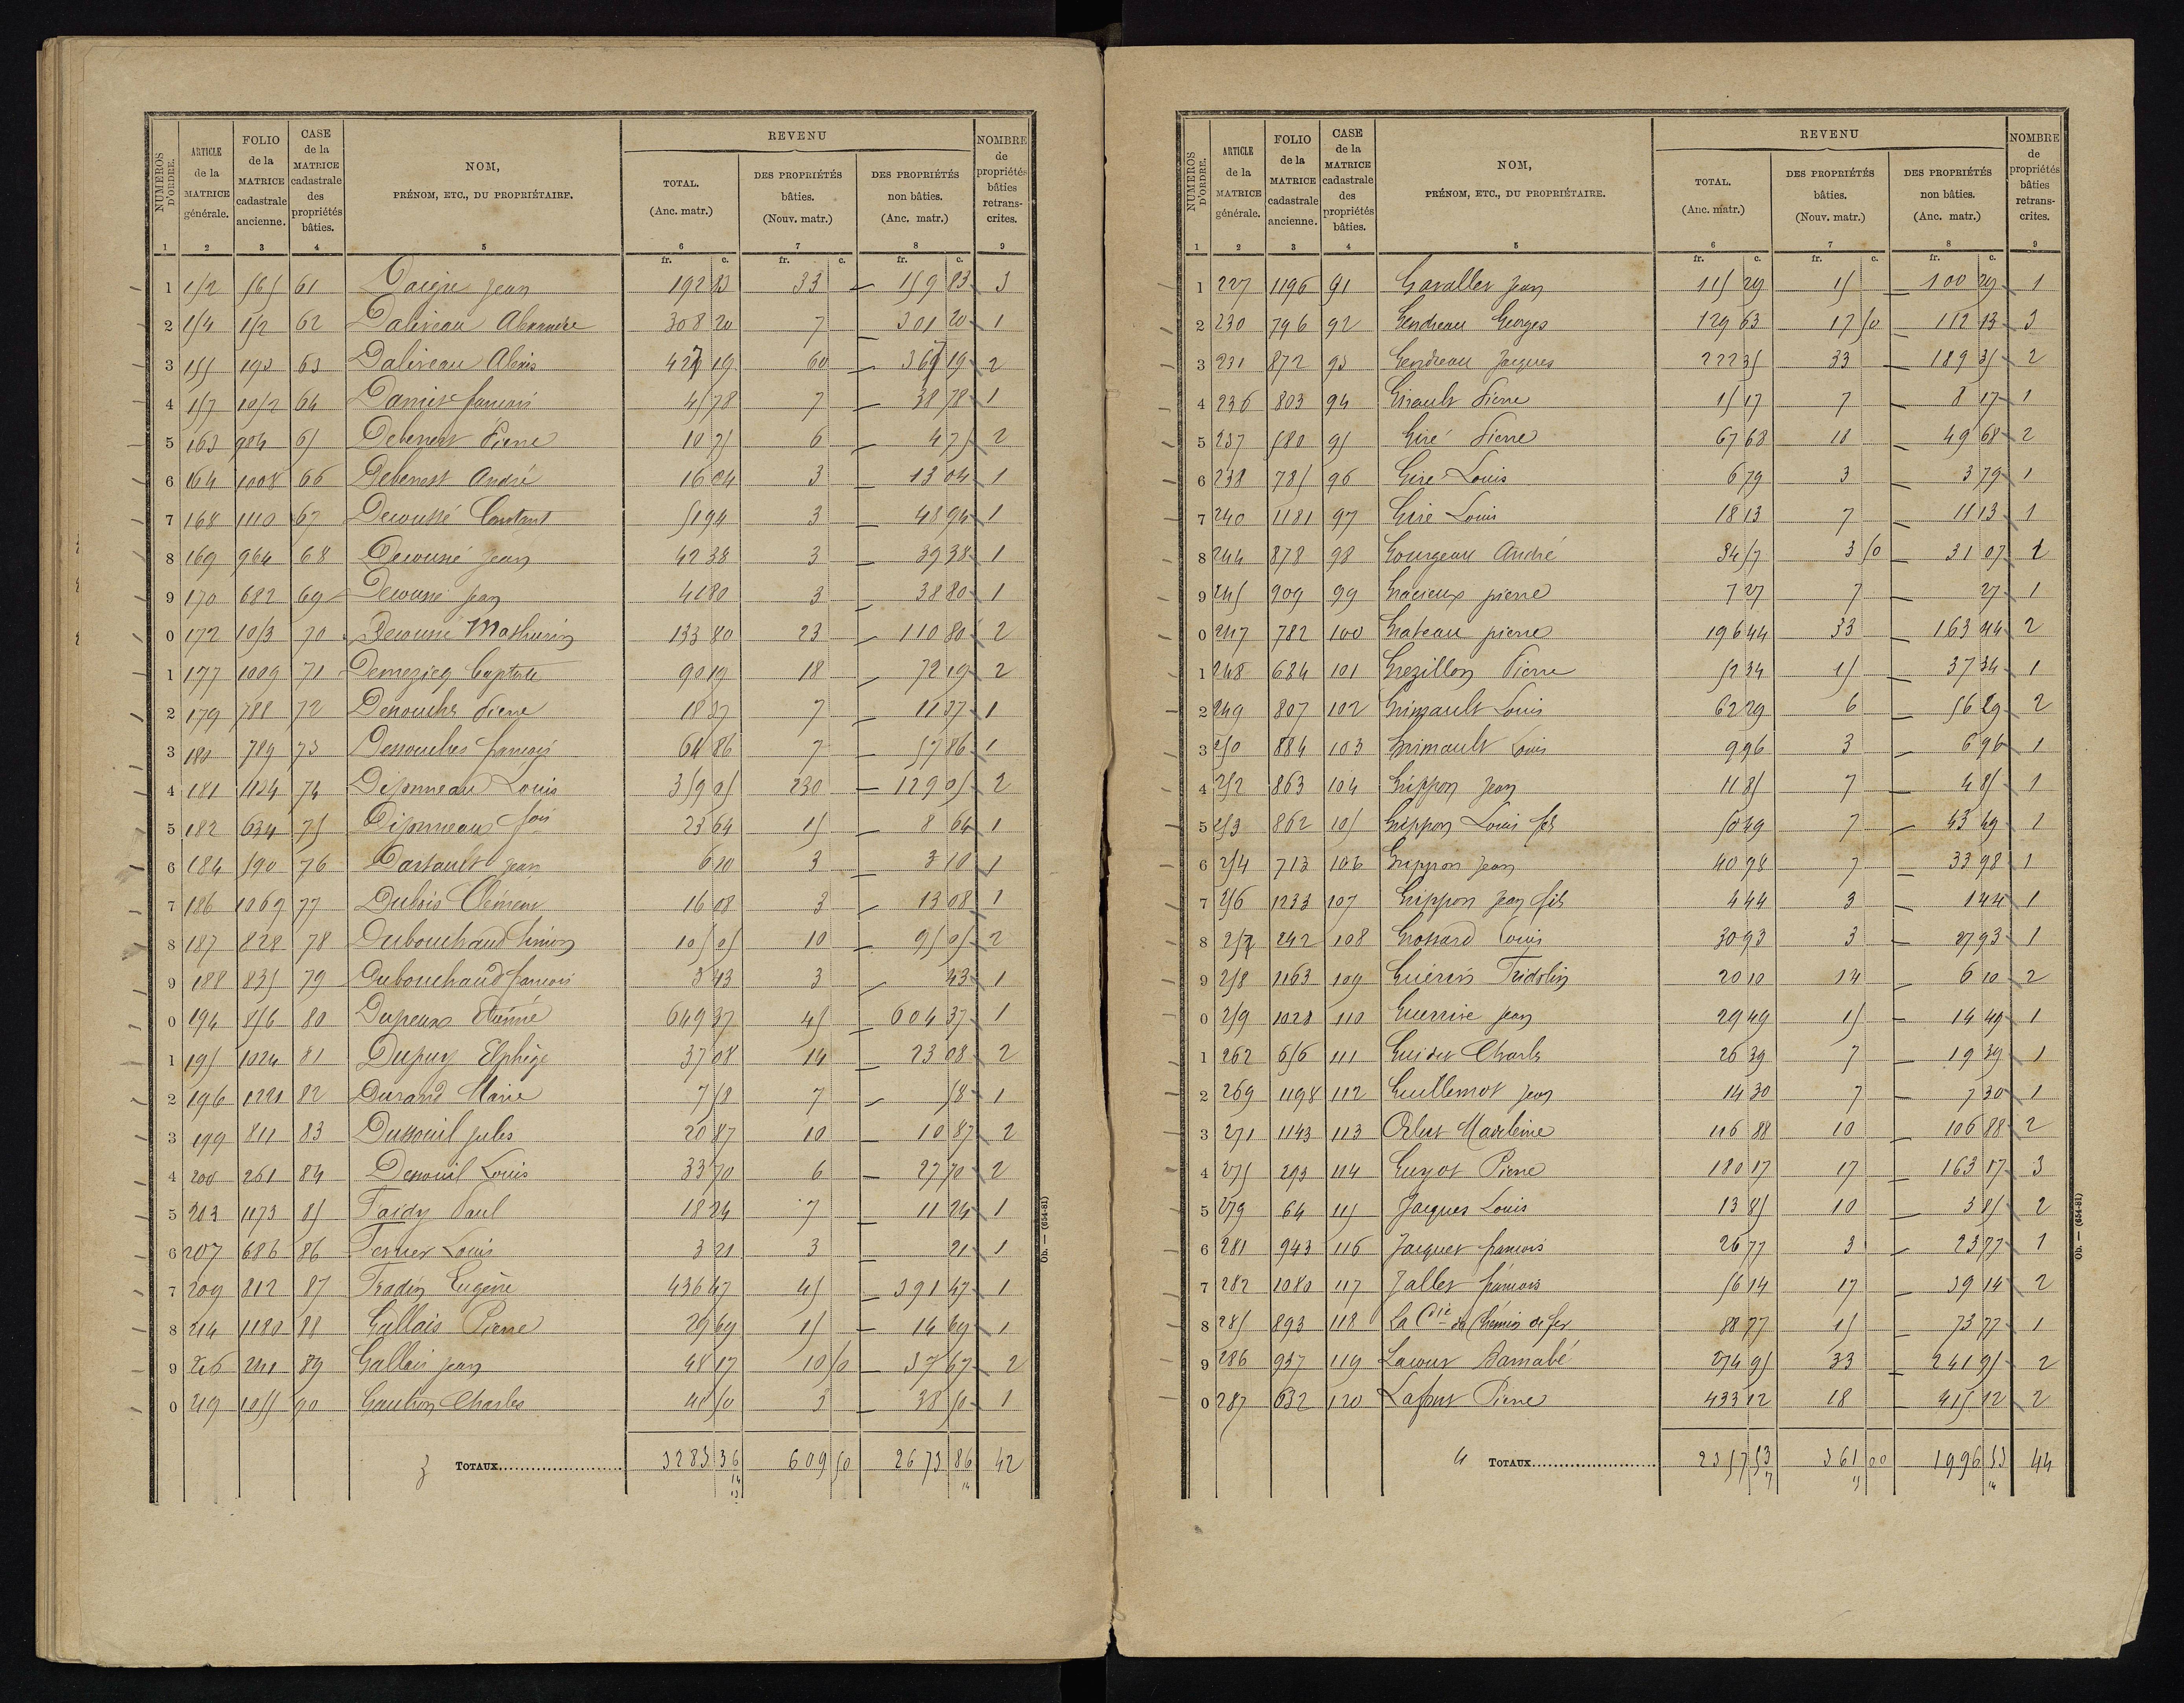 NUMÉROS D'ORDRE. ARTICLE de la MATRICE générale. FOLIO de la MATRICE cadastrale ancienne. CASE de la MATRICE cadastrale des propriétés bâties. NOM, PRÉNOM, ETC., DU PROPRIÉTAIRE. REVENU TOTAL. (Anc. matr.) DES PROPRIÉTÉS bâties. (Nouv. matr.) DES PROPRIÉTÉS non bâties. (Anc. matr.) NOMBRE de propriétés bâties retrans- crites.
1 2 3 4 5 6 7 8 9
fr. c. fr. c. fr. c.
1 152 565 61 Daigre Jean 192 83 33 — 159 83 3
2 154 152 62 Daliveau 308 20 7 — 301 20 1
3 155 193 63 Daliveau Alexis 427 19 60 — 367 19 2
4 157 1052 64 Damiet françois 45 78 7 — 38 78 1
5 163 904 65 Debenest Pierre 10 75 6 — 4 75 2
6 164 1008 66 Debenest André 16 04 3 — 13 04 1
7 168 1110 67 Decoussé Constant 51 94 3 — 48 94 1
8 169 964 68 Decoussé Jean 42 38 3 — 39 38 1
9 170 682 69 Decoussé Jean 41 80 3 — 38 80 1
0 172 1053 70 Decoussé Mathurin 133 80 23 — 110 80 2
1 177 1009 71 Demezieq 90 19 18 — 72 19 2
2 179 788 72 Desouches Pierre 18 37 7 — 11 37 1
3 180 789 73 Dessouches françois 64 86 7 — 57 86 1
4 181 1124 74 Diponneau Louis 359 05 230 — 129 05 2
5 182 634 75 Diponneau fois 23 64 15 — 8 64 1
6 184 590 76 Dartault Jean 6 10 3 3 10 1
7 186 1069 77 Dubois Clément 16 08 3 — 13 08 1
8 187 828 78 Dubouchaud Simon 105 05 10 — 95 05 2
9 188 835 79 Dubouchaud françois 3 43 3 — 43 1
0 194 856 80 Dupeux Etienne 649 37 45 — 604 37 1
1 195 1024 81 Dupuy Elphège 37 08 14 — 23 08 2
2 196 1221 82 Durand Marie 7 58 7 — 58 1
3 199 811 83 Dussouil Jules 20 87 10 — 10 87 2
4 200 261 84 Desouil Louis 33 70 6 — 27 70 2
5 203 1173 85 Faidy Paul 18 24 7 — 11 24 1
6 207 686 86 Fernier Louis 3 21 3 21 1
7 209 812 87 Fradin Eugène 436 47 45 — 391 47 1
8 214 1180 88 Gallais Pierre 29 69 15 — 14 69 1
9 216 89 Gallais Jean 48 17 10 50 — 37 67 2
0 219 1055 90 Gautron Charles 41 50 3 — 38 50 1
3 TOTAUX 3283 36 609 50 2673 86 42
Ob. — (654-81)
NUMÉROS D'ORDRE. ARTICLE de la MATRICE générale. FOLIO de la MATRICE cadastrale ancienne. CASE de la MATRICE cadastrale des propriétés bâties. NOM, PRÉNOM, ETC., DU PROPRIÉTAIRE. REVENU TOTAL. (Anc. matr.) DES PROPRIÉTÉS bâties. (Nouv. matr.) DES PROPRIÉTÉS non bâties. (Anc. matr.) NOMBRE de propriétés bâties retrans- crites.
1 2 3 4 5 6 7 8 9
fr. c. fr. c. fr. c.
1 227 1196 91 Gavallet Jean 115 29 15 — 100 29 1
2 230 796 92 Gendreau Georges 129 63 17 50 — 112 13 3
3 231 872 93 Gendreau Jacques 222 35 33 — 189 35 2
4 236 803 94 Girault Pierre 15 17 7 — 8 17 1
5 237 580 95 Giré Pierre 67 68 18 — 49 68 2
6 238 785 96 Giré Louis 6 79 3 — 3 79 1
7 240 1181 97 Giré Louis 18 13 7 — 11 13 1
8 244 878 98 Gourgeau André 34 57 3 50 — 31 07 2
9 245 909 99 Gracieux pierre 7 27 7 — 27 1
0 247 782 100 Grateau pierre 196 44 33 — 163 44 2
1 248 684 101 Grezillon Pierre 52 34 15 — 37 34 1
2 249 807 102 Grimault Louis 62 29 6 — 56 29 2
3 250 884 103 Grimault Louis 9 96 3 — 6 96 1
4 252 863 104 Grippon Jean 11 85 7 — 4 85 1
5 253 862 105 Grippon Louis fils 50 49 7 — 43 49 1
6 254 713 106 Grippon Jean 40 98 7 — 33 98 1
7 256 1233 107 Grippon Jean fils 4 44 3 — 1 44 1
8 257 242 108 Grossard Louis 30 93 3 — 27 93 1
9 258 1163 109 Guérin Fridolin 20 10 14 — 6 10 2
0 259 1028 110 Guerrive Jean 29 49 15 — 14 49 1
1 262 656 111 Charles 26 39 7 — 19 39 1
2 269 1198 112 Guillemot Jean 14 30 7 — 7 30 1
3 271 1143 113 116 88 10 — 106 88 2
4 275 293 114 Guyot Pierre 180 17 17 — 163 17 3
5 279 64 115 Jacques Louis 13 85 10 — 3 85 2
6 281 943 116 Jacques françois 26 77 3 — 23 77 1
7 282 1080 117 Jallet françois 56 14 17 — 39 14 2
8 285 893 118 La Cie du Chemin de fer 88 77 15 — 73 77 1
9 286 937 119 Lacour Barnabé 274 95 33 — 241 95 2
0 287 632 120 Lafont Pierre 433 12 18 — 415 12 2
4 TOTAUX 2357 53 361 00 1996 53 44
Ob. — (654-81)